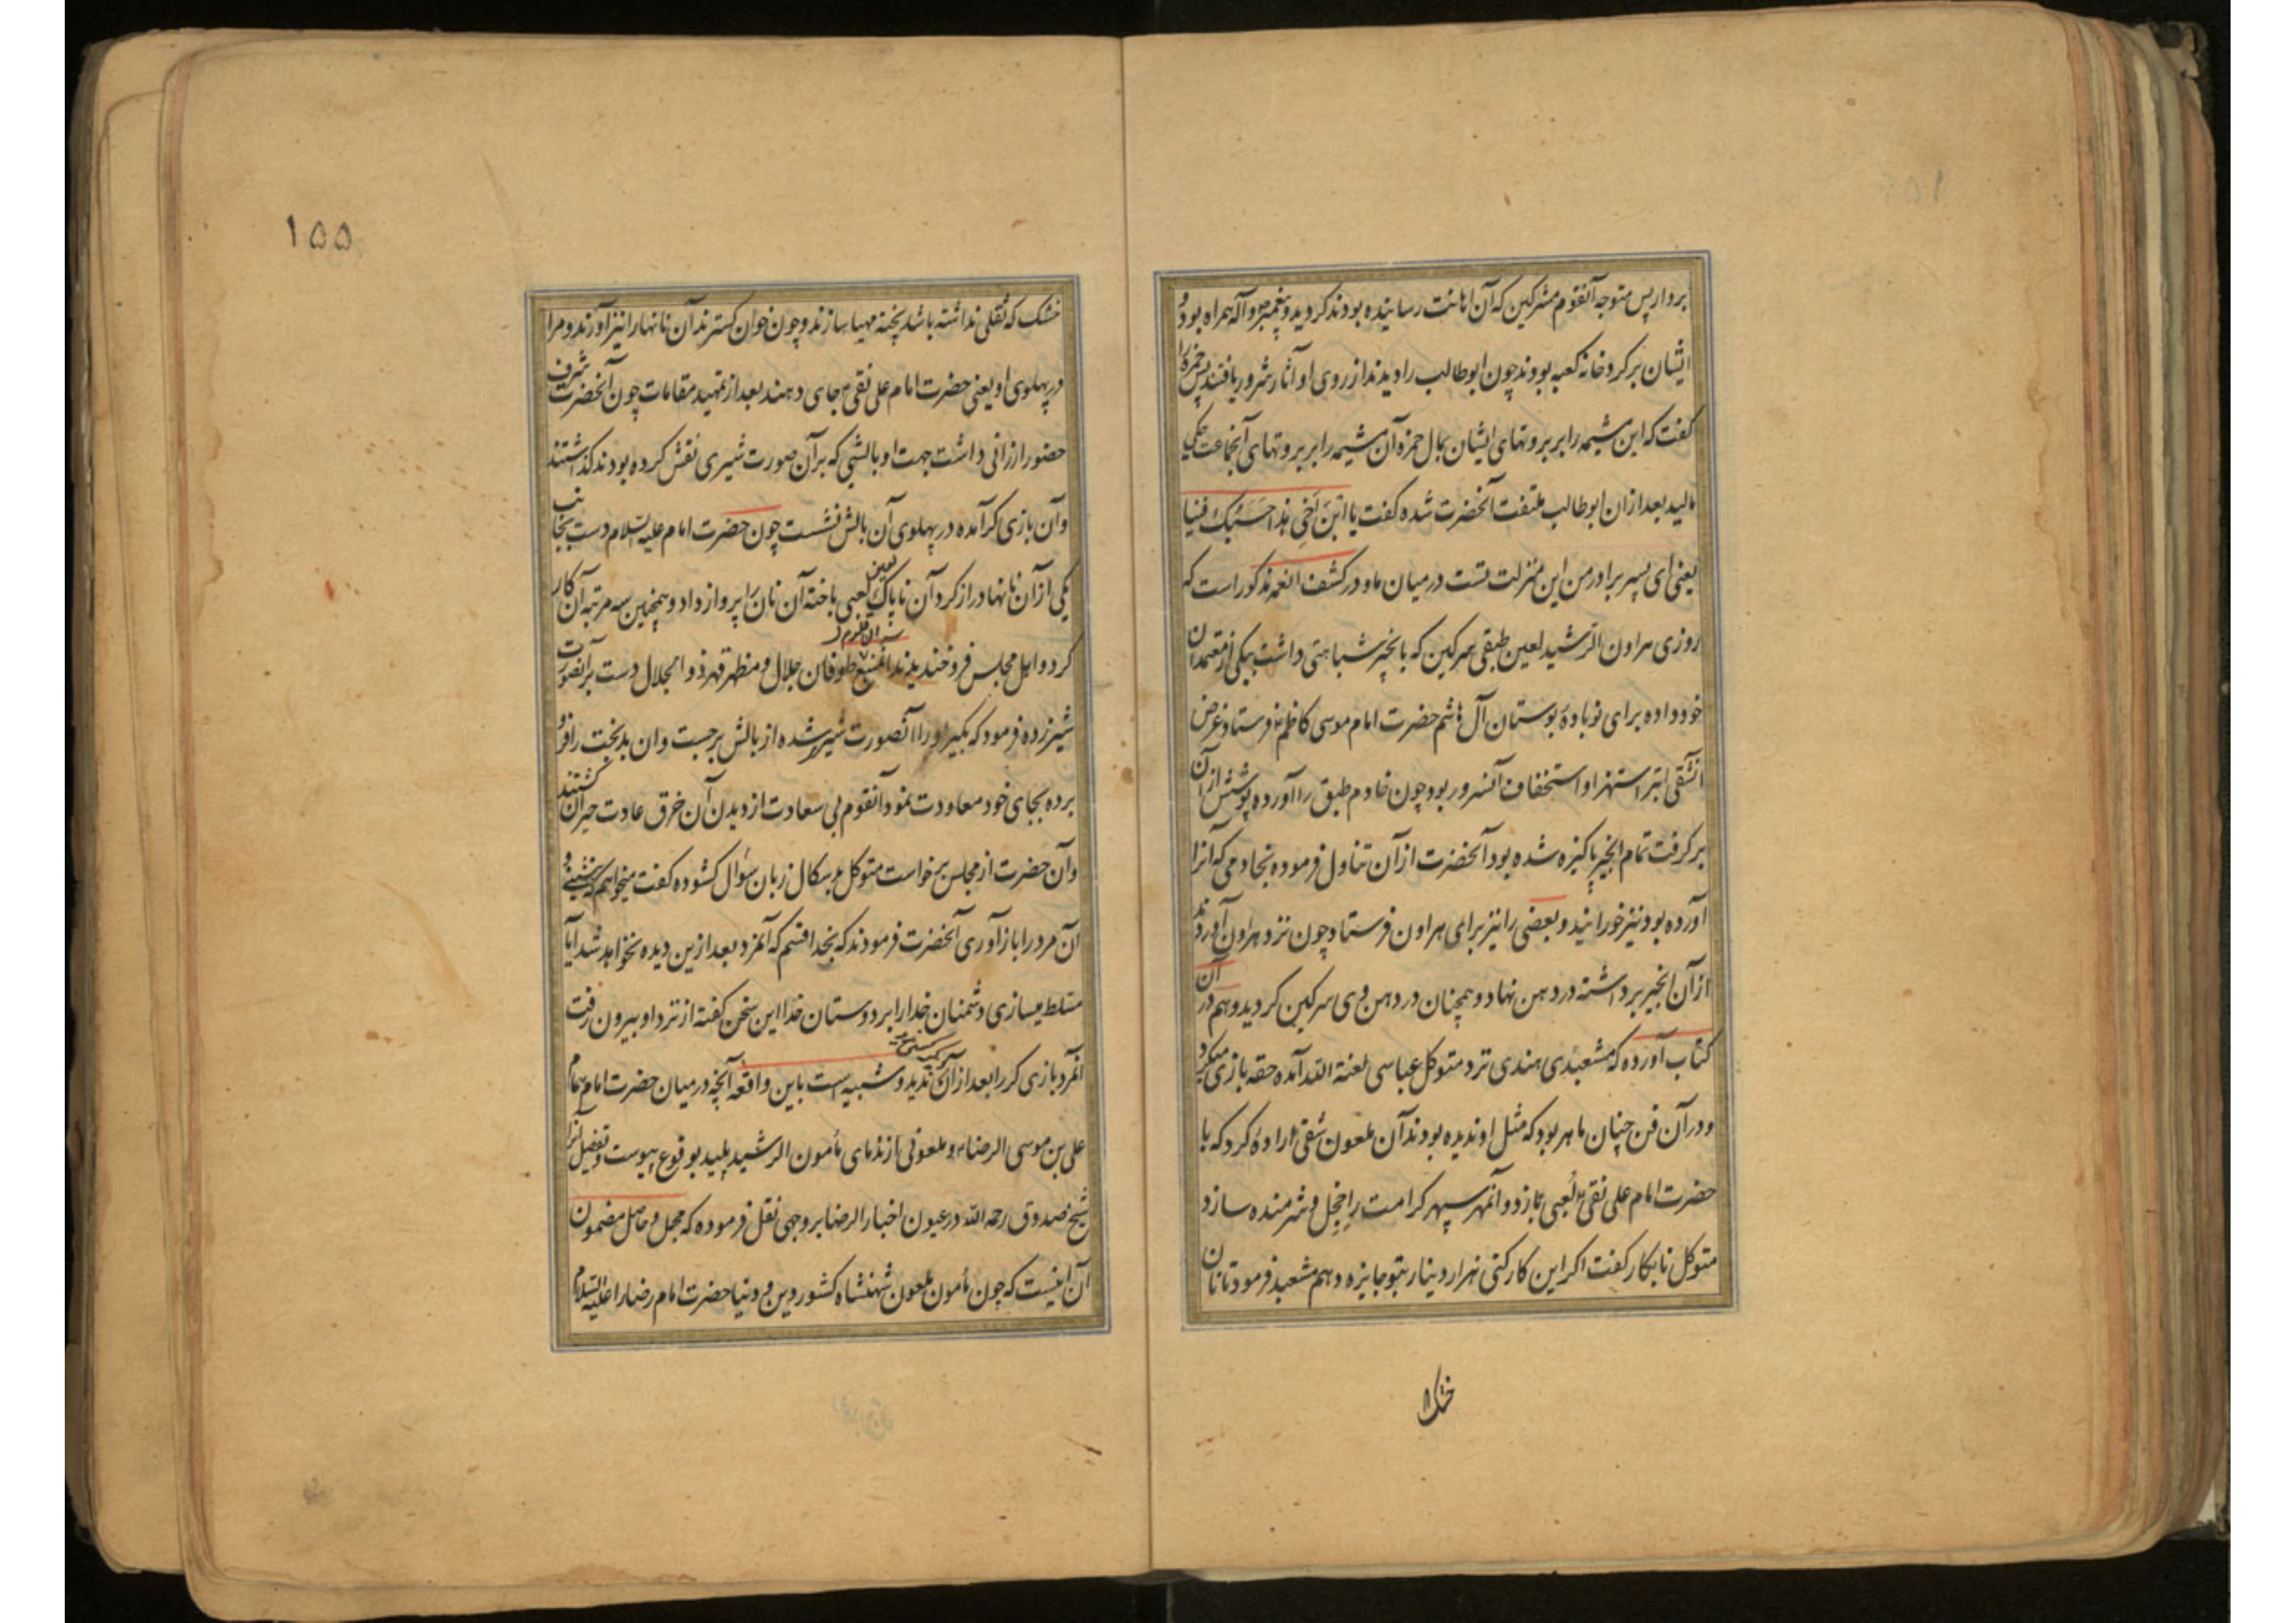 بردار پس متوجه آنقوم مشرکین که آن اهانت رسانیده بودند کردید و پیغمبر و آله همراه بود و
ایشان بر کرد خانه کعبه بودند چون ابوطالب را دیدند از روی او آثار شر دریافتند پس حمزه را
کفت که این مشیمه را بر بروتهای ایشان بمال حمزه آن مشیمه را بر بروتهای آنجماعت
مالید بعد ازان ابوطالب ملتفت آنحضرت شده کفت یا ابْنَ اَخِی هذا حَسَبُکَ فینا
یعنی ای پسر برادر من این منزلت تست در میان ما و در کشف الغمه مذکور است که
روزی هراون الرشید لعین طبقی سرکین که بانجیر شباهتی داشت بیکی از معتمدان
خود داده برای نوباوه بوستان آل هاشم حضرت امام موسی کاظم فرستاد و غرض
آنشقی ابتر استهزا و استخفاف آنسرور بود چون خادم طبق را آورده پوشش از آن
بر کرفت تمام انجیر پاکیزه شده بود آنحضرت از آن تناول فرموده بخادمی که آنرا
آورده بود نیز خورانید و بعضی را نیز برای هراون فرستاد چون نزد هراون آوردند
از آن انجیر برداشته در دهن نهاد و همچنان در دهن وی سرکین کردید و هم در آن
کتاب آورده که مشعبدی هندی نزد متوکل عباسی لعنة الله آمده حقه بازی میکرد
و در آن فن چنان ماهر بود که مثل او ندیده بودند آن ملعون شقی اراده کرد که با
حضرت امام علی نقی لُعبی ببازد و آنمهر سپهر کرامت را خجل و شرمنده سازد
متوکل نابکار کفت اکر این کار کنی هزار دینار بتو جایزه دهم مشعبد فرمود تا نان
خشک
۱۵۵
خشک که ثقلی نداشته باشد پخته مهیا سازند و چون خوان کسترند آن نانها را نیز آورند و مرا
در پهلوی او یعنی حضرت امام علی نقی جای دهند بعد از تمهید مقامات چون آنحضرت شرف
حضور ارزانی داشت جهت او بالشی که بر آن صورت شیری نقش کرده بودند کذاشتند
و آن بازی کر آمده در پهلوی آن بالش نشست چون حضرت امام علیه السلام دست بجانب
یکی از آن نانها دراز کرد آن ناپاک لعین لعبی باخته آن نان را پرواز داد و همچنین سه مرتبه آن کار
کرد و اهل مجلس فرو خندیدند آنمنبع طوفان جلال و مظهر قهر ذو الجلال دست بر آنصورت
شیر زده فرمود که بکیر او را آنصورت شیر شده از بالش برجست و ان بدبخت را فرو
برده بجای خود معاودت نمود آنقوم بی سعادت از دیدن آن خرق عادت حیران کشتند
و آن حضرت از مجلس برخواست متوکل بدسکال زبان سؤال کشوده کفت میخواهم که بنشینی و
آن مرد را باز آوری آنحضرت فرمودند که بخدا قسم که آنمرد بعد ازین دیده نخواهد شد آیا
مسلط میسازی دشمنان خدا را بر دوستان خدا این سخن کفته از نزد او بیرون رفت
آنمرد بازی کر را بعد از آن کسی ندید و شبیه است باین واقعه آنچه در میان حضرت امام همام
علی بن موسی الرضا و ملعونی از ندمای مأمون الرشید پلید بوقوع پیوست و تفصیل آنرا
شیخ صدوق رحمه الله در عیون اخبار الرضا بر وجهی نقل فرموده که مجمل و حاصل مضمون
آن اینست که چون مأمون ملعون شهنشاه کشور دین و دنیا حضرت امام رضا را علیه السلام